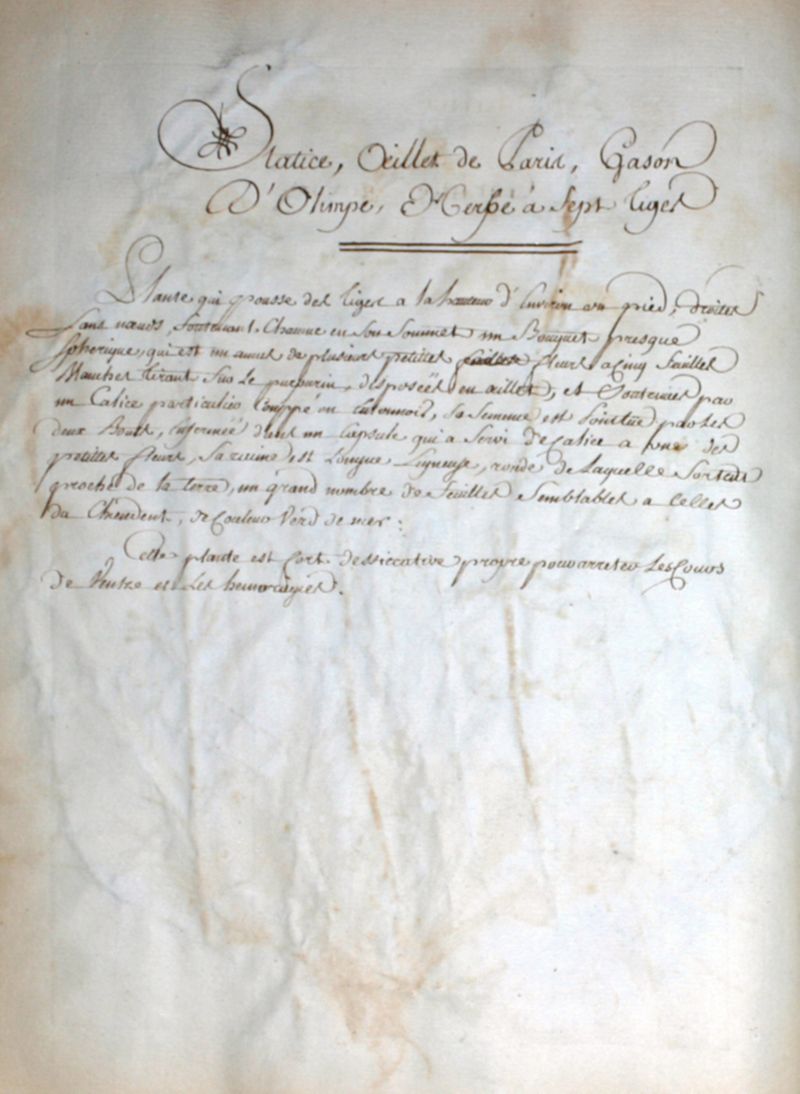 Statice, Œillet de Paris, Gason
D'Olimpe, Herbe à sept tiges
Plante qui pousse des tiges a la hauteur d'Environ un pied, droites
sans nœuds, soutenant chacune en son sommet un Bouquet presque
spherique, qui est un amas de plusieurs petittes fleurs a cinq feuilles
Blanches tirant sur le purpurin, disposeés en œillet, et soutenues par
un Calice particulier Couppé en entonnoir, sa semence est pointüe par les
deux Bouts, enfermeé dans un Capsule qui a servi de Calice a une des
petittes fleurs, sa racine est Longue Ligneuse, ronde de Laquelle sortent
proche de la terre, un grand nombre de feuilles semblables a Celles
du Chiendent, de Couleur Verd de mer:
Cette plante est fort dessiccative propre pour arreter Les Cours
de Ventre et Les hemoragies.